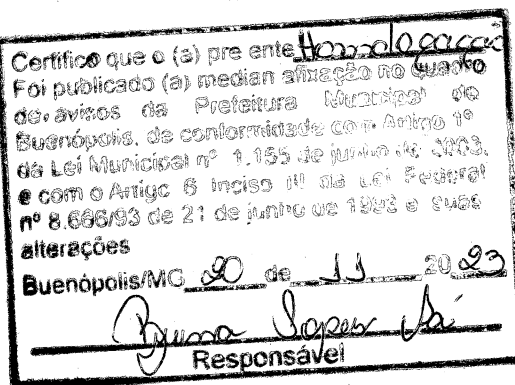 Certifico que o (a) pre ente Homologação
Foi publicado (a) median afixação no quadro
de avisos da Prefeitura Municipal de
Buenópolis, de conformidade com Artigo 1º
da Lei Municipal nº 1.155 de junho de 2003,
e com o Artigo 6 Inciso III da Lei Federal
nº 8.666/93 de 21 de junho de 1993 e suas
alterações
Buenópolis/MG 20 de 11 2023
Bruna Lopes Sá
Responsável